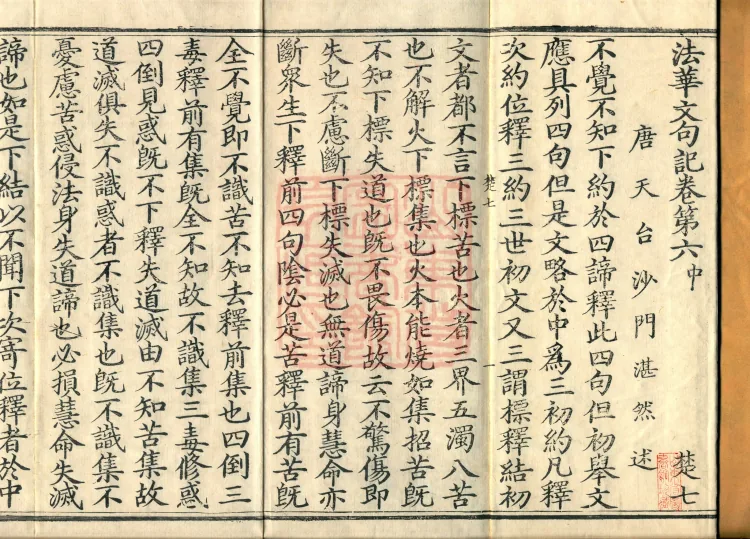 法華文句記卷第六中 楚七
唐天台沙門湛然述
不覺不知下約於四諦釋此四句但初舉文
應具列四句但是文略於中爲三初約凡釋
次約位釋三約三世初文又三謂標釋結初
文者都不言下標苦也火者三界五濁八苦
楚七 一
也不解火下標集也火本能燒如集招苦既
不知下標失道也既不畏傷故云不驚傷即
失也不慮斷下標失滅也無道諦身慧命亦
斷眾生下釋前四句陰必是苦釋前有苦既
全不覺即不識苦不知去釋前集也四倒三
毒釋前有集既全不知故不識集三毒修惑
四倒見惑既不下釋失道滅由不知苦集故
道滅俱失不識惑者不識集也既不識集不
憂慮苦惑侵法身失道諦也必損慧命失滅
諦也如是下結以不聞下次寄位釋者於中